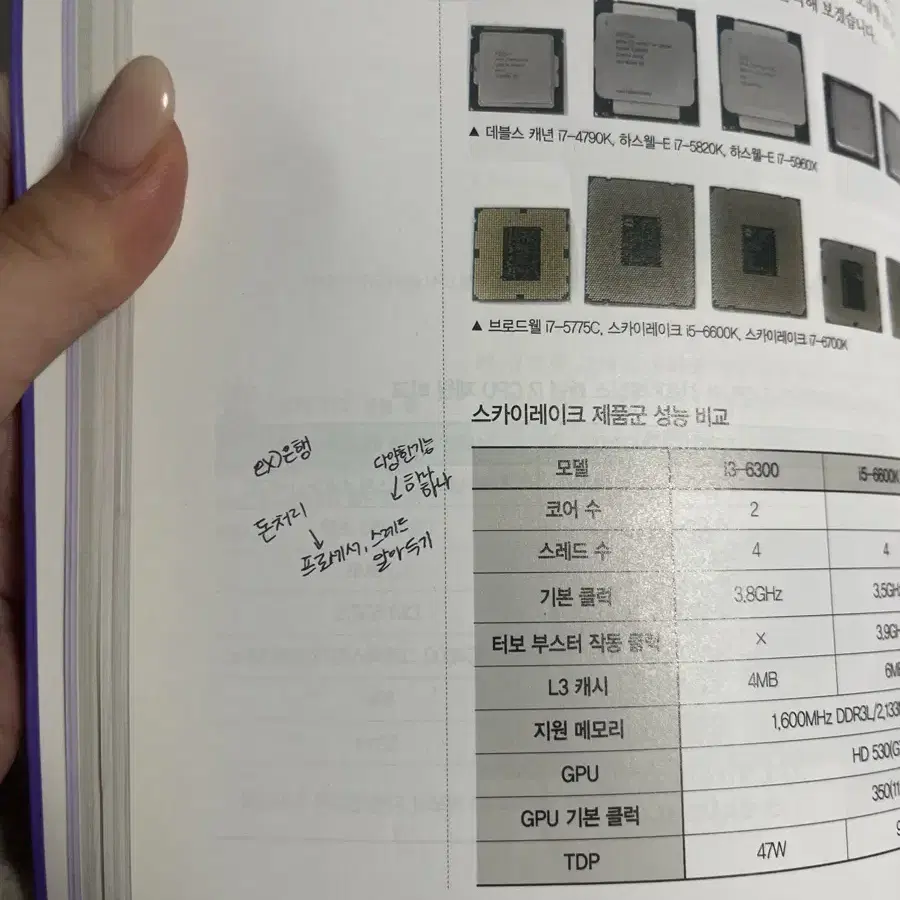 해 보겠습니다.
▲ 데블스 캐년 i7-4790K, 하스웰-E i7-5820K, 하스웰-E i7-5960X
▲ 브로드웰 i7-5775C, 스카이레이크 i5-6600K, 스카이레이크 i7-6700K
스카이레이크 제품군 성능 비교
모델 i3-6300 i5-6600K
코어 수 2
스레드 수 4 4
기본 클럭 3.8GHz 3.5GHz
터보 부스터 작동 클럭 × 3.9GH
L3 캐시 4MB 6MB
지원 메모리 1,600MHz DDR3L/2,133
GPU HD 530(G
GPU 기본 클럭 350(11
TDP 47W 9
ex)은행
다양한기능
↓ 하나
돈처리
↓
프로세서, 스레드
알아두기